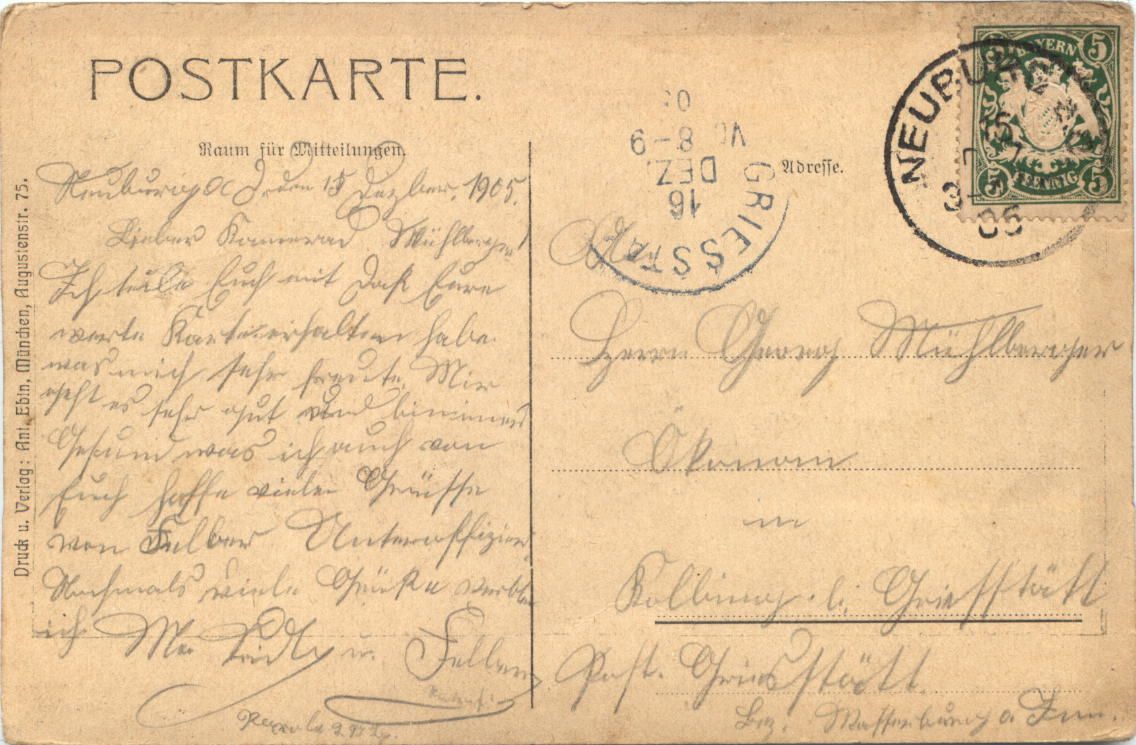 POSTKARTE.
Raum für Mitteilungen.
Neuburg a D den 15 Dezbr. 1905.
Lieber Kamerad Mühlberger!
Ich teile Euch mit daß Eure
werte Karte erhalten habe
was mich sehr freute. Mir
geht es sehr gut und bin immer
Gesund was ich auch von
Euch hoffe viele Grüsse
von Felber Unteroffizier
Nochmals viele Grüße
ich u. Felber
Druck u. Verlag: Ant. Ebln, München, Augustenstr. 75.
Adresse.
BAYERN
5 5
5 PFENNIG 5
NEUBU
3-
05
GRIESSTÄ
16
DEZ.
8-9
05
An
Herrn Georg Mühlberger
Ökonom
in
Kolbing b. Griesstätt
Post. Griesstätt.
Bez. Wasserburg a Inn.